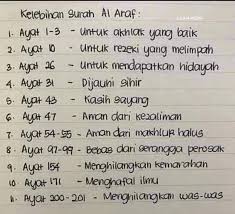 Kelebihan Surah Al Araf :
1. Ayat 1-3 - Untuk akhlak yang baik
2. Ayat 10 - Untuk rezeki yang melimpah
3. Ayat 26 - Untuk mendapatkan hidayah
4. Ayat 31 - Dijauhi sihir
5. Ayat 43 - Kasih sayang
6. Ayat 47 - Aman dari kezaliman
7. Ayat 54-55 - Aman dari makhluk halus
8. Ayat 97-99 - Bebas dari serangga perosak
9. Ayat 154 - Menghilangkan kemarahan
10. Ayat 171 - Menghafal ilmu
11. Ayat 200-201 - Menghilangkan was-was